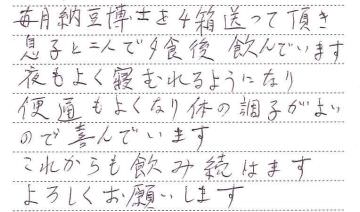 毎月納豆博士を4箱送って頂き
息子と二人で夕食後 飲んでいます
夜もよく寝むれるようになり
便通もよくなり体の調子がよい
ので喜んでいます
これからも飲み続けます
よろしくお願いします